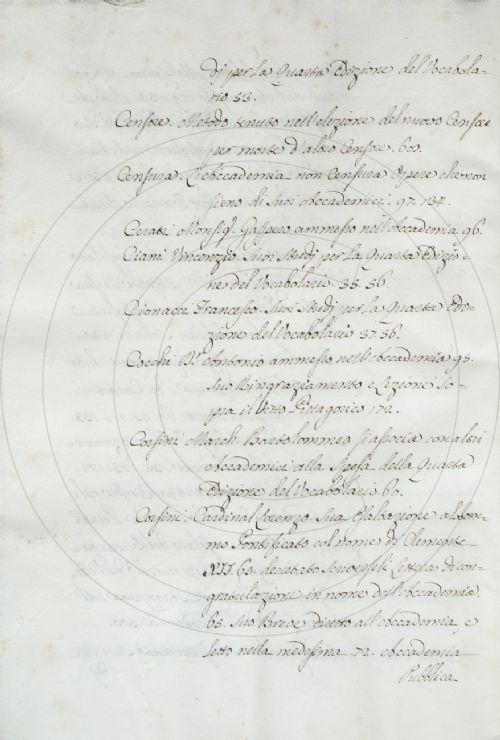 dj per la Quarta Edizione del Vocabola-
rio 53.
Censore. Metodo tenuto nell'elezione del nuovo Censore
per morte d'altro Censore. 60.
Censura. L'Accademia non Censura Opere che non
sieno di Suoi Accademici. 97. 134.
Cerati Monsig.r Gasparo ammesso nell'Accademia 96.
Ciani Vincenzio. Suoi Studj per la Quarta Edizio-
ne del Vocabolario 55. 56.
Cionacci Francesco. Suoi Studj per la Quarta Edi-
zione del Vocabolario 57. 56.
Cocchi D.r Antonio ammesso nell'Accademia 95.
Suo Ringraziamento e Lezione So-
pra il Vitto Pittagorico 172.
Corsini March. Bartolommeo si associa con altri
Accademici alla Spesa della Quarta
Edizione del Vocabolario 60.
Corsini Cardinal Lorenzo. Sua Esaltazione al Som-
mo Pontificato col nome di Clemente
XII. 65. decretato Scrivensile Lettera di con-
gratulazione in nome dell'Accademia
65. Suo Breve diretto all'Accademia, e
letto nella medesima 72. Accademia
Pubblica